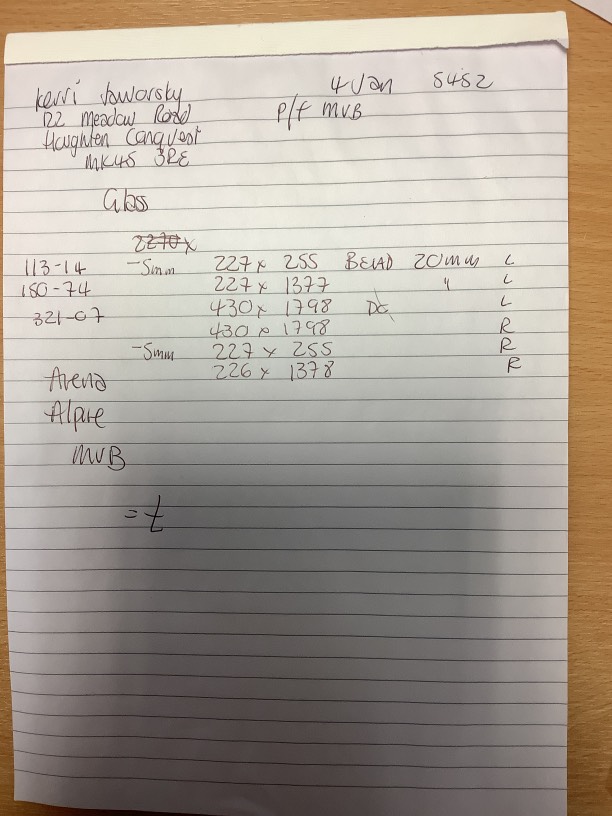 4 Jan 5452
Kerri Jaworsky
P/f MVB
122 Meadow Road
Haughten Conquest
MK45 3RE
Glass
2270 x
113-14 -5mm 227 x 255 BEAD 20mm L
180-74 227 x 1377 " L
321-07 430 x 1798 DG L
430 x 1798 R
-5mm 227 x 255 R
226 x 1378 R
Arena
Alpire
MVB
= t